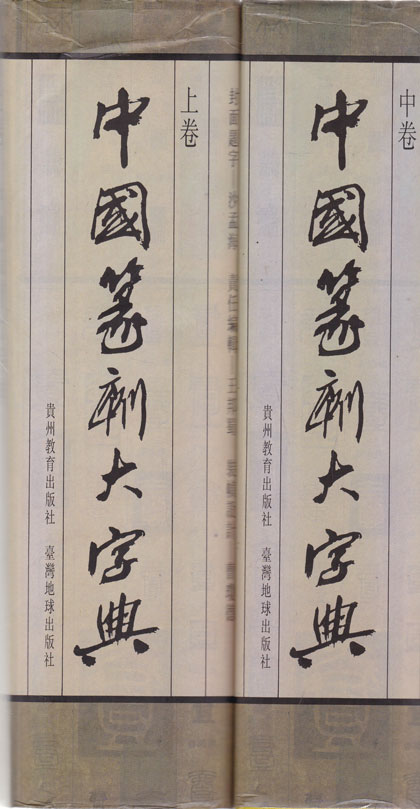 上卷
中國篆刻大字典
貴州教育出版社 臺灣地球出版社
封面題字 沙孟海 責任編輯
中卷
中國篆刻大字典
貴州教育出版社 臺灣地球出版社